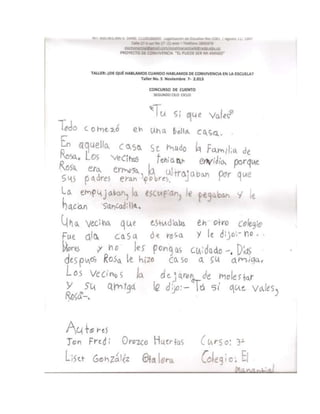 PROYECTO DE CONVIVENCIA "EL PUEDE SER MI AMIGO"
TALLER: ¿DE QUÉ HABLAMOS CUANDO HABLAMOS DE CONVIVENCIA EN LA ESCUELA?
Taller No. 5 Noviembre 7- 2.013
CONCURSO DE CUENTO
SEGUNDO CICLO
"Tu si que vales"
Todo comezó en una bella casa.
En aquella casa se mudo la Familia de
Rosa. Los vecinos tenian envidia porque
Rosa era ermosa, la ultrajaban por que
sus padres eran pobres.
La empujaban, la escupian, le pegaban y le
hacian sancadilla.
Una vecina que estudiaba en otro colegio
Fue ala casa de rosa y le dijo:-no
llores y no les pongas cuidado-. Dias
despues Rosa le hizo caso a su amiga.
Los vecinos la dejaron de molestar
y su amiga le dijo:- Tú si que vales,
Rosa-.
Autores
Jon Fredi Orozco Huertas Curso: 3º
Liset González Otalora Colegio: El
Manantial